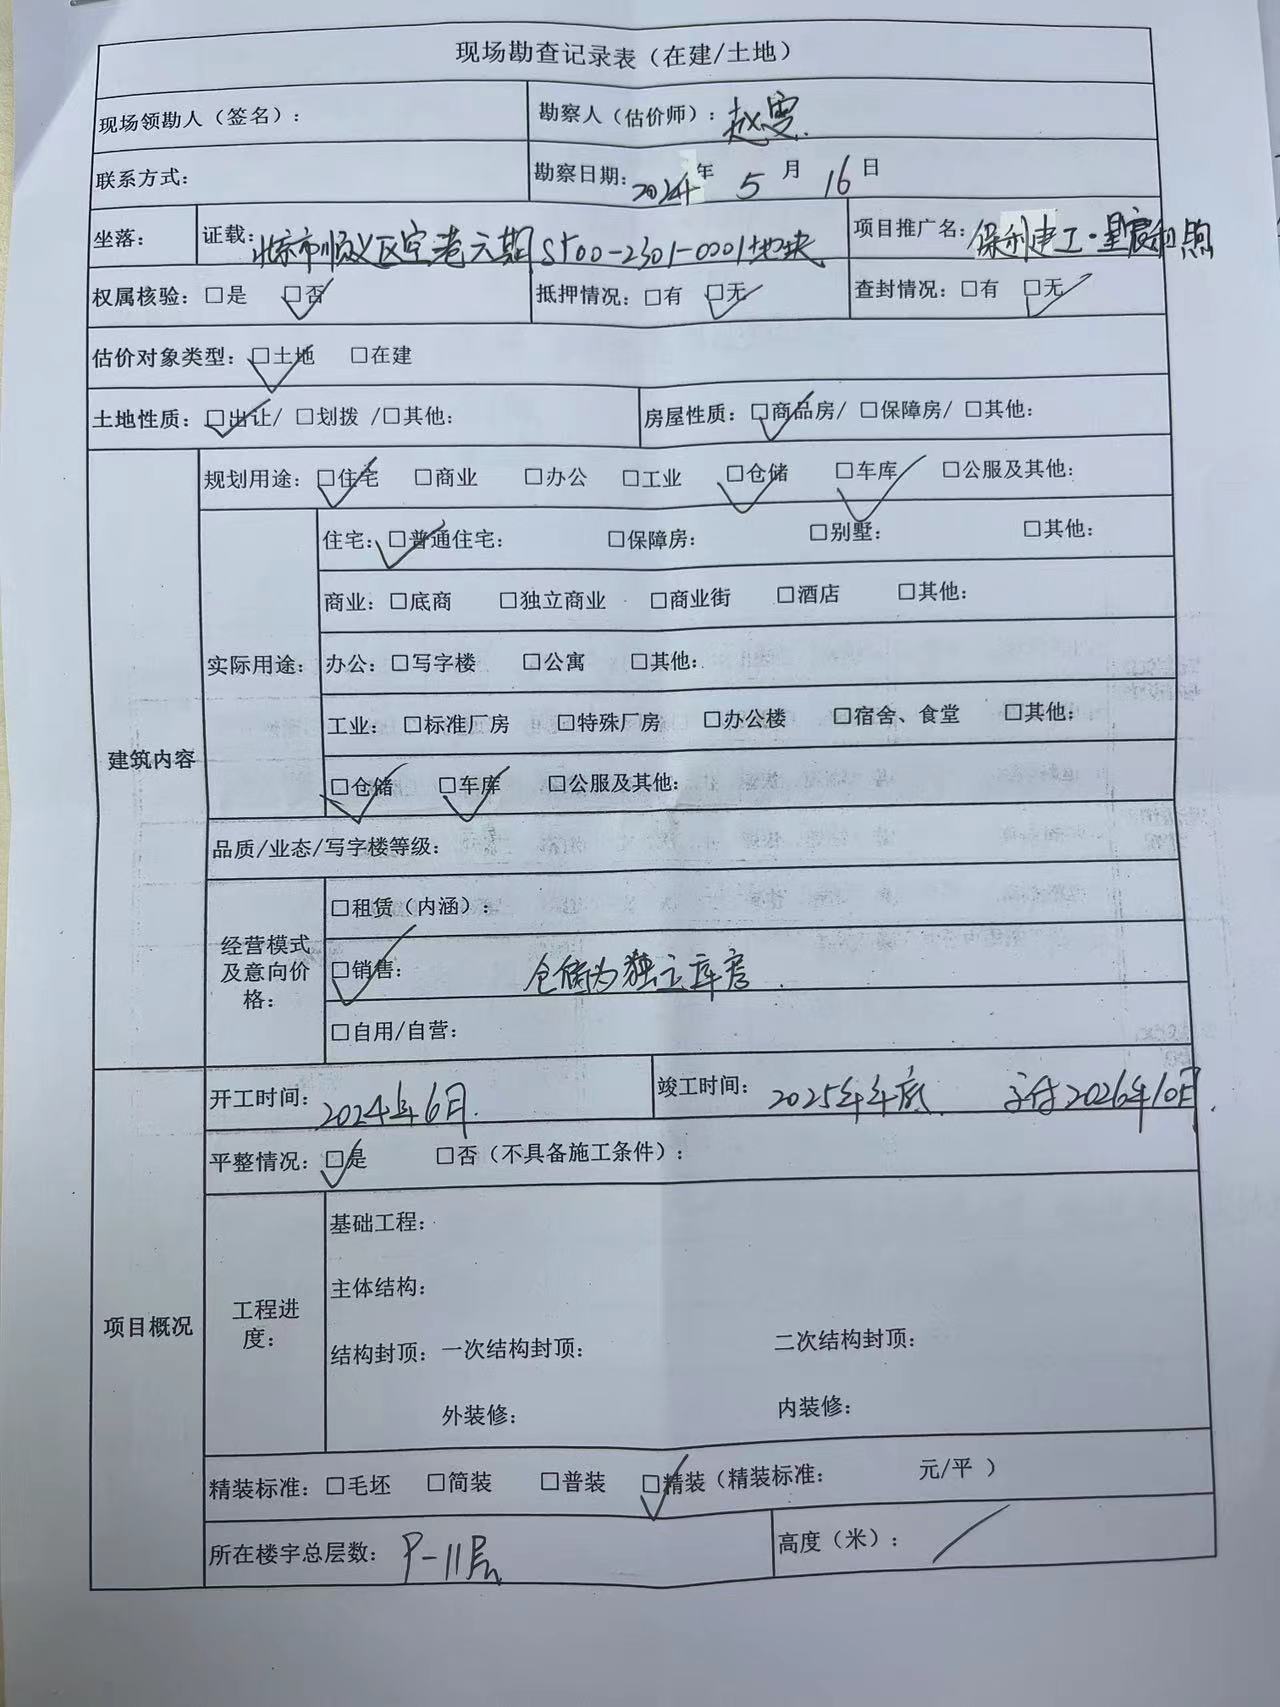 现场勘查记录表（在建/土地）
现场领勘人（签名）：
勘察人（估价师）：赵雯
联系方式：
勘察日期：2024年 5 月 16 日
坐落：
证载：北京市顺义区空港六期SY00-2301-0001地块
项目推广名：保利建工·星宸和煦
权属核验：□是 □否
抵押情况：□有 □无
查封情况：□有 □无
估价对象类型：□土地 □在建
土地性质：□出让/ □划拨 /□其他：
房屋性质：□商品房/ □保障房/ □其他：
建筑内容
规划用途：□住宅 □商业 □办公 □工业 □仓储 □车库 □公服及其他：
实际用途：
住宅：□普通住宅： □保障房： □别墅： □其他：
商业：□底商 □独立商业 □商业街 □酒店 □其他：
办公：□写字楼 □公寓 □其他：
工业：□标准厂房 □特殊厂房 □办公楼 □宿舍、食堂 □其他：
□仓储 □车库 □公服及其他：
品质/业态/写字楼等级：
经营模式
及意向价
格：
□租赁（内涵）：
□销售： 仓储为独立库房
□自用/自营：
项目概况
开工时间：2024年6月.
竣工时间：2025年年底. 交付2026年10月.
平整情况：□是 □否（不具备施工条件）：
工程进
度：
基础工程：
主体结构：
结构封顶：一次结构封顶： 二次结构封顶：
外装修： 内装修：
精装标准：□毛坯 □简装 □普装 □精装（精装标准： 元/平 ）
所在楼宇总层数： 9-11层
高度（米）： /